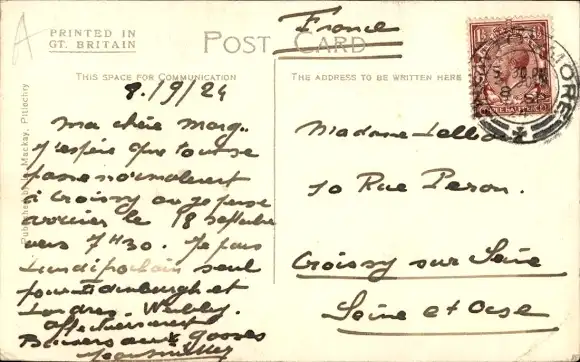 PRINTED IN
GT. BRITAIN
POST CARD
France
THIS SPACE FOR COMMUNICATION
THE ADDRESS TO BE WRITTEN HERE
8/9/24
Ma chère Marg..
J'espère que tout se
passe normalement
à Croissy où je pense
arriver le 18 septembre
vers 7H30. Je pars
Lundi prochain seul
pour Edinburgh et
Londres. Wembley.
affectueusement
Baisers aux gosses
Madame
10 Rue Péron.
Croissy sur Seine
Seine et Oise
Mackay, Pitlochry